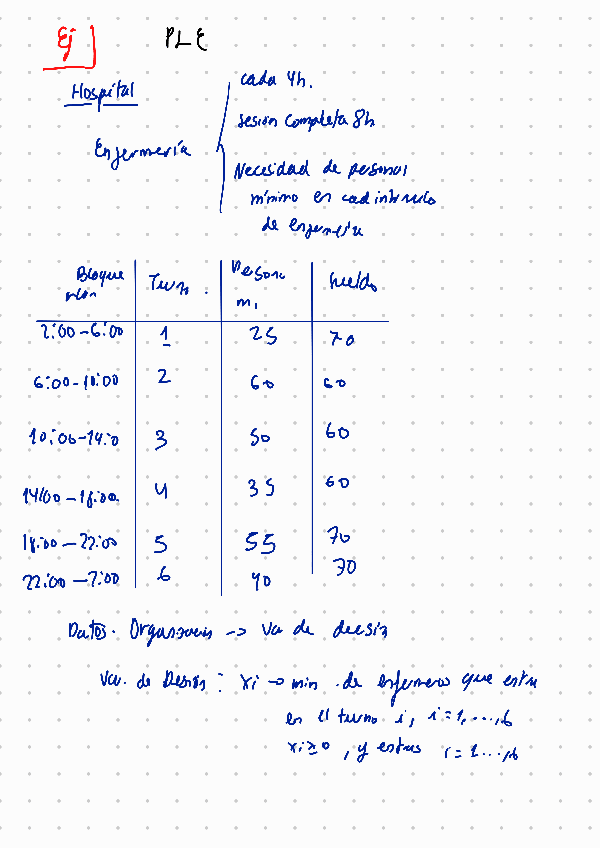 Ej PLE
Hospital
Enfermería
cada 4h.
sesión completa 8h
Necesidad de personal
mínimo en cad intervalo
de enfermería
Bloque Turn. Person Sueldo
mi
2:00-6:00 1 25 70
6:00-10:00 2 60 60
10:00-14:0 3 50 60
14:00-18:00. 4 35 60
18:00-22:00 5 55 70
22:00-2:00 6 40 70
Datos. -> Va de decsió
Var. de Desión: xi -> min. de enfermeros que estn
en el turno i, i=1,...,6
xi≥0, y i=1...,6